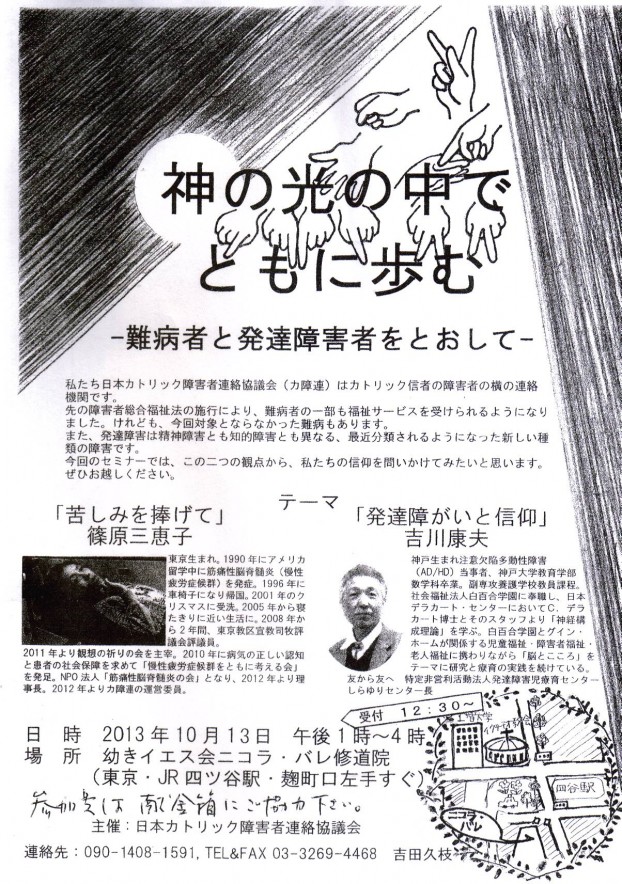 神の光の中で
ともに歩む
-難病者と発達障害者をとおして-
私たち日本カトリック障害者連絡協議会（カ障連）はカトリック信者の障害者の横の連絡
機関です。
先の障害者総合福祉法の施行により、難病者の一部も福祉サービスを受けられるようになり
ました。けれども、今回対象とならなかった難病もあります。
また、発達障害は精神障害とも知的障害とも異なる、最近分類されるようになった新しい種
類の障害です。
今回のセミナーでは、この二つの観点から、私たちの信仰を問いかけてみたいと思います。
ぜひお越しください。
テーマ
「苦しみを捧げて」
篠原三恵子
東京生まれ。1990年にアメリカ
留学中に筋痛性脳脊髄炎（慢性
疲労症候群）を発症。1996年に
車椅子になり帰国。2001年のク
リスマスに受洗。2005年から寝
たきりに近い生活に。2008年か
ら2年間、東京教区宣教司牧評
議会評議員。
2011年より観想の祈りの会を主宰。2010年に病気の正しい認知
と患者の社会保障を求めて「慢性疲労症候群をともに考える会」
を発足。NPO法人「筋痛性脳脊髄炎の会」となり、2012年より理
事長。2012年よりカ障連の運営委員。
「発達障がいと信仰」
吉川康夫
神戸生まれ注意欠陥多動性障害
（AD/HD）当事者、神戸大学教育学部
数学科卒業。副専攻養護学校教員課程。
社会福祉法人白百合学園に奉職し、日本
デラカート・センターにおいてC．デラ
カート博士とそのスタッフより「神経構
成理論」を学ぶ。白百合学園とグイン・
ホームが関係する児童福祉・障害者福祉・
老人福祉に携わりながら「脳とこころ」を
テーマに研究と療育の実践を続けている。
友から友へ　特定非営利活動法人発達障害児療育センター
しらゆりセンター長
受付　12:30～
日　時　2013年10月13日　午後1時～4時
場　所　幼きイエス会ニコラ・バレ修道院
（東京・JR四ツ谷駅・麹町口左手すぐ）
参加費は献金箱にご協力下さい。
主催：日本カトリック障害者連絡協議会
連絡先：090-1408-1591, TEL&FAX 03-3269-4468　吉田久枝
上智大学
イグナチオ教会
四谷駅
ニコラ
バレ